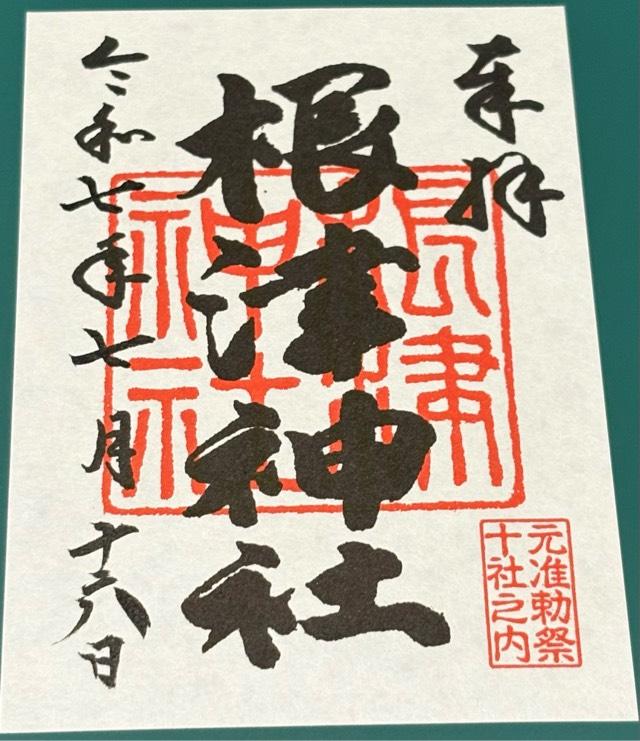 奉拝
根津神社
令和七年七月十六日
根津
神社
元准勅祭
十社之内